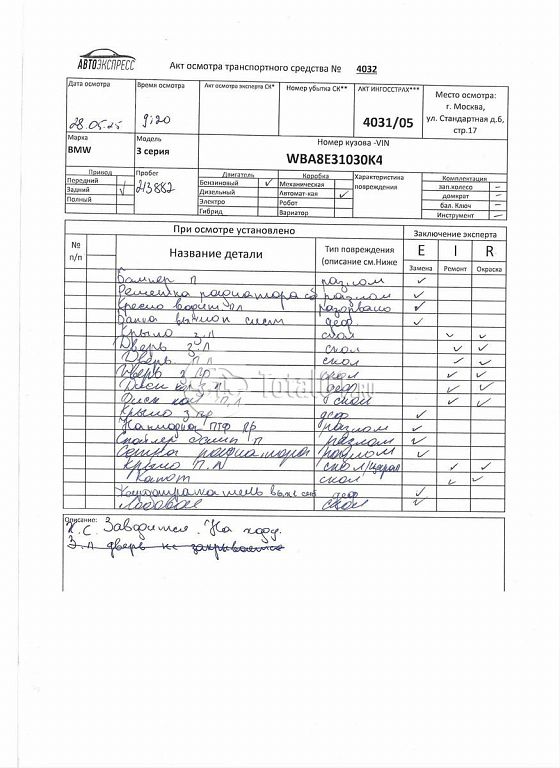 АВТОЭКСПРЕСС
Акт осмотра транспортного средства № 4032
Дата осмотра Время осмотра Акт осмотра эксперта СК* Номер убытка СК** АКТ ИНГОССТРАХ*** Место осмотра:
28.05.25 9:20 4031/05 г. Москва, ул. Стандартная д.6, стр.17
Марка Модель Номер кузова -VIN
BMW 3 серия WBA8E31030K4
Привод Пробег Двигатель Коробка Характеристика повреждения Комплектация
Передний 213882 Бензиновый ✓ Механическая зап.колесо –
Задний ✓ Дизельный Автомат-кая ✓ домкрат –
Полный Электро Робот бал. Ключ –
Гибрид Вариатор Инструмент –
При осмотре установлено Заключение эксперта
№ п/п Название детали Тип повреждения (описание см.Ниже E I R
Замена Ремонт Окраска
Бампер П разлом ✓
Решетка радиатора разлом ✓
Кресло водит. разорвано ✓
Банка выхлоп сист деф. ✓
Крыло З.Л скол ✓ ✓
Дверь З.Л скол ✓ ✓
Дверь П Л скол ✓ ✓
Дверь З скол ✓ ✓
Диск З.П деф ✓ ✓
TotalCar.ru
Диск П.Л скол ✓ ✓
Крыло З пр деф ✓
Накладка ПТФ ПР разлом ✓
Спойлер бамп П разлом ✓
Сетка радиатора разлом ✓
Крыло П.Л скол/царап ✓ ✓
Капот скол ✓ ✓
деф ✓
Лобовое скол ✓
Описание:
Х.С. Заводится. На ходу.
З.Л дверь не закрывается